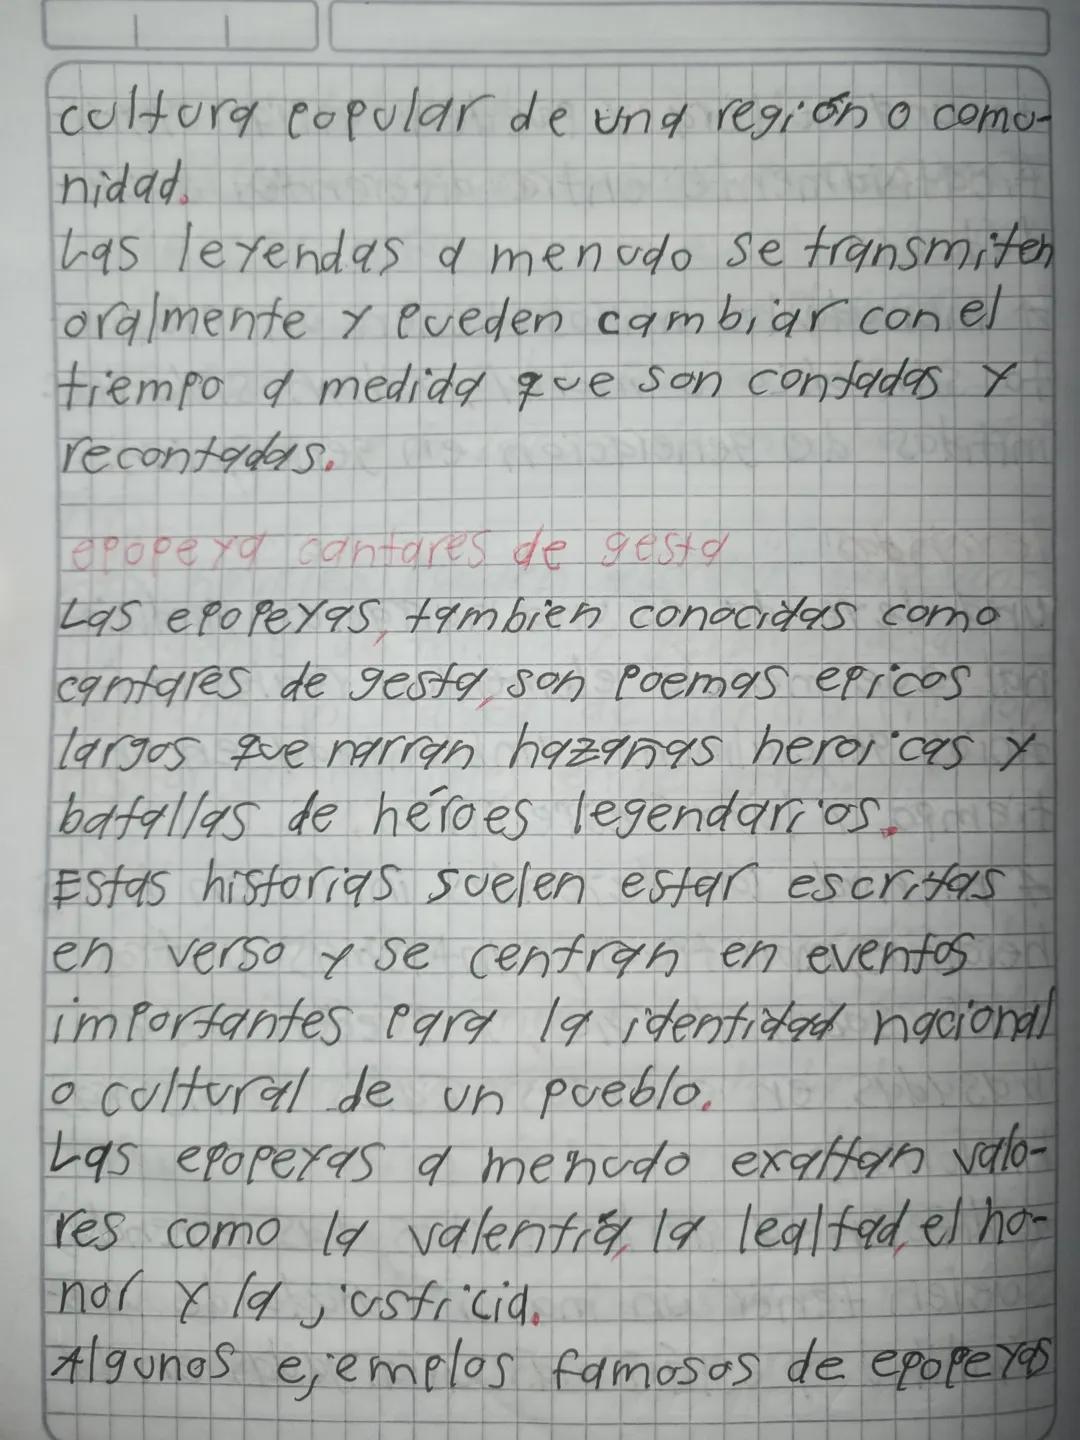 cultura popular de una región o comu-
nidad.
Las leyendas a menudo se transmiten
oralmente y pueden cambiar con el
tiempo a medida que son contadas y
recontadas.
epopeya cantares de gesta
Las epopeyas, tambien conocidas como
cantares de gesta, son poemas epicos
largos que narran hazañas heroicas y
batallas de héroes legendarios.
Estas historias suelen estar escritas
en verso y se centran en eventos
importantes para la identidad nacional
o cultural de un pueblo.
Las epopeyas a menudo exaltan valo-
res como la valentía, la lealtad, el ho-
nor y la justricia.
Algunos ejemplos famosos de epopeyas